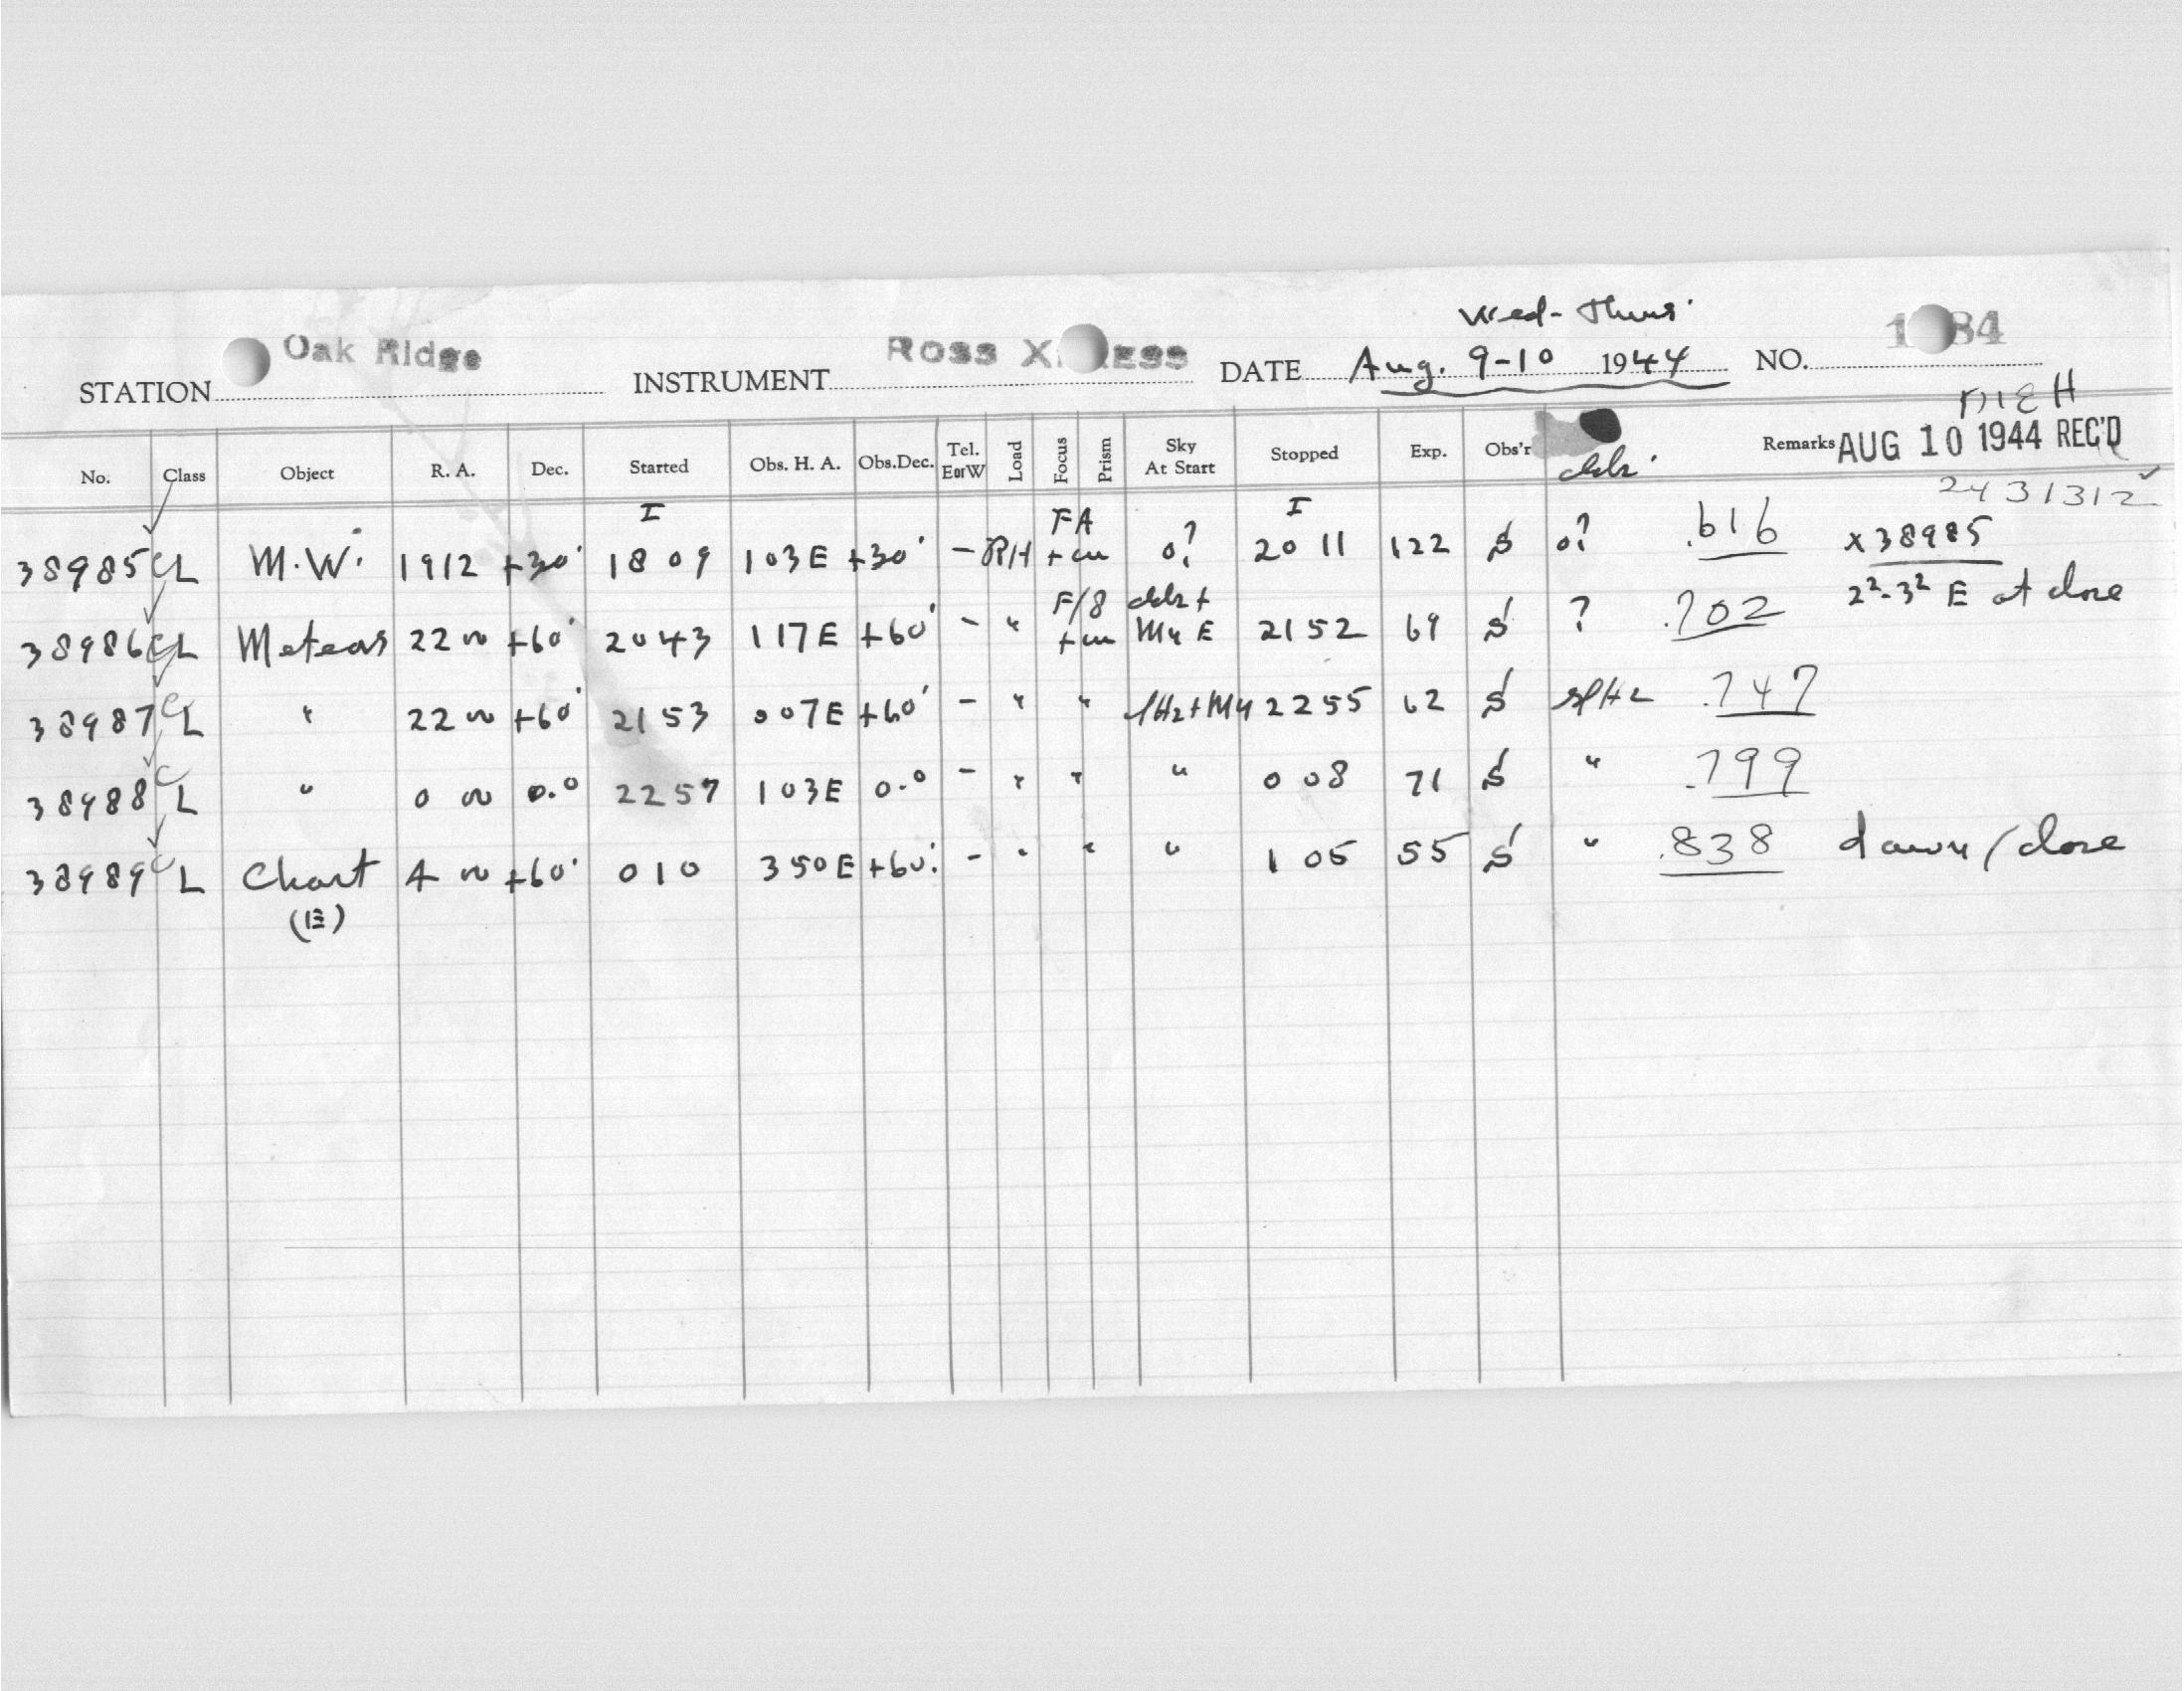 Wed-Thurs.
STATION Oak Ridge INSTRUMENT Ross DATE Aug. 9-10 1944 NO. 84
H
No. Class Object R. A. Dec. Started Obs. H. A. Obs.Dec. Tel. EorW Load Focus Prism Sky At Start Stopped Exp. Obs'r Remarks AUG 10 1944 REC'D
2431312
I I
38985 CL M.W. 1912 +30° 18 09 103E +30° - RH FA o? 20 11 122 S o? .616 x38985
38986 CL Meteors 22 00 +60° 20 43 117E +60° - " F/8 My E 21 52 69 S ? .702 2²-3² E at close
38987 CL " 22 00 +60° 21 53 007E +60° - " " 22 55 62 S .747
38988 CL " 0 00 0.0 22 57 103E 0.0 - " " " 0 08 71 S " .799
38989 CL Chart 4 00 +60° 0 10 350E +60° - " " " 1 05 55 S " .838 dawn/close
(E)